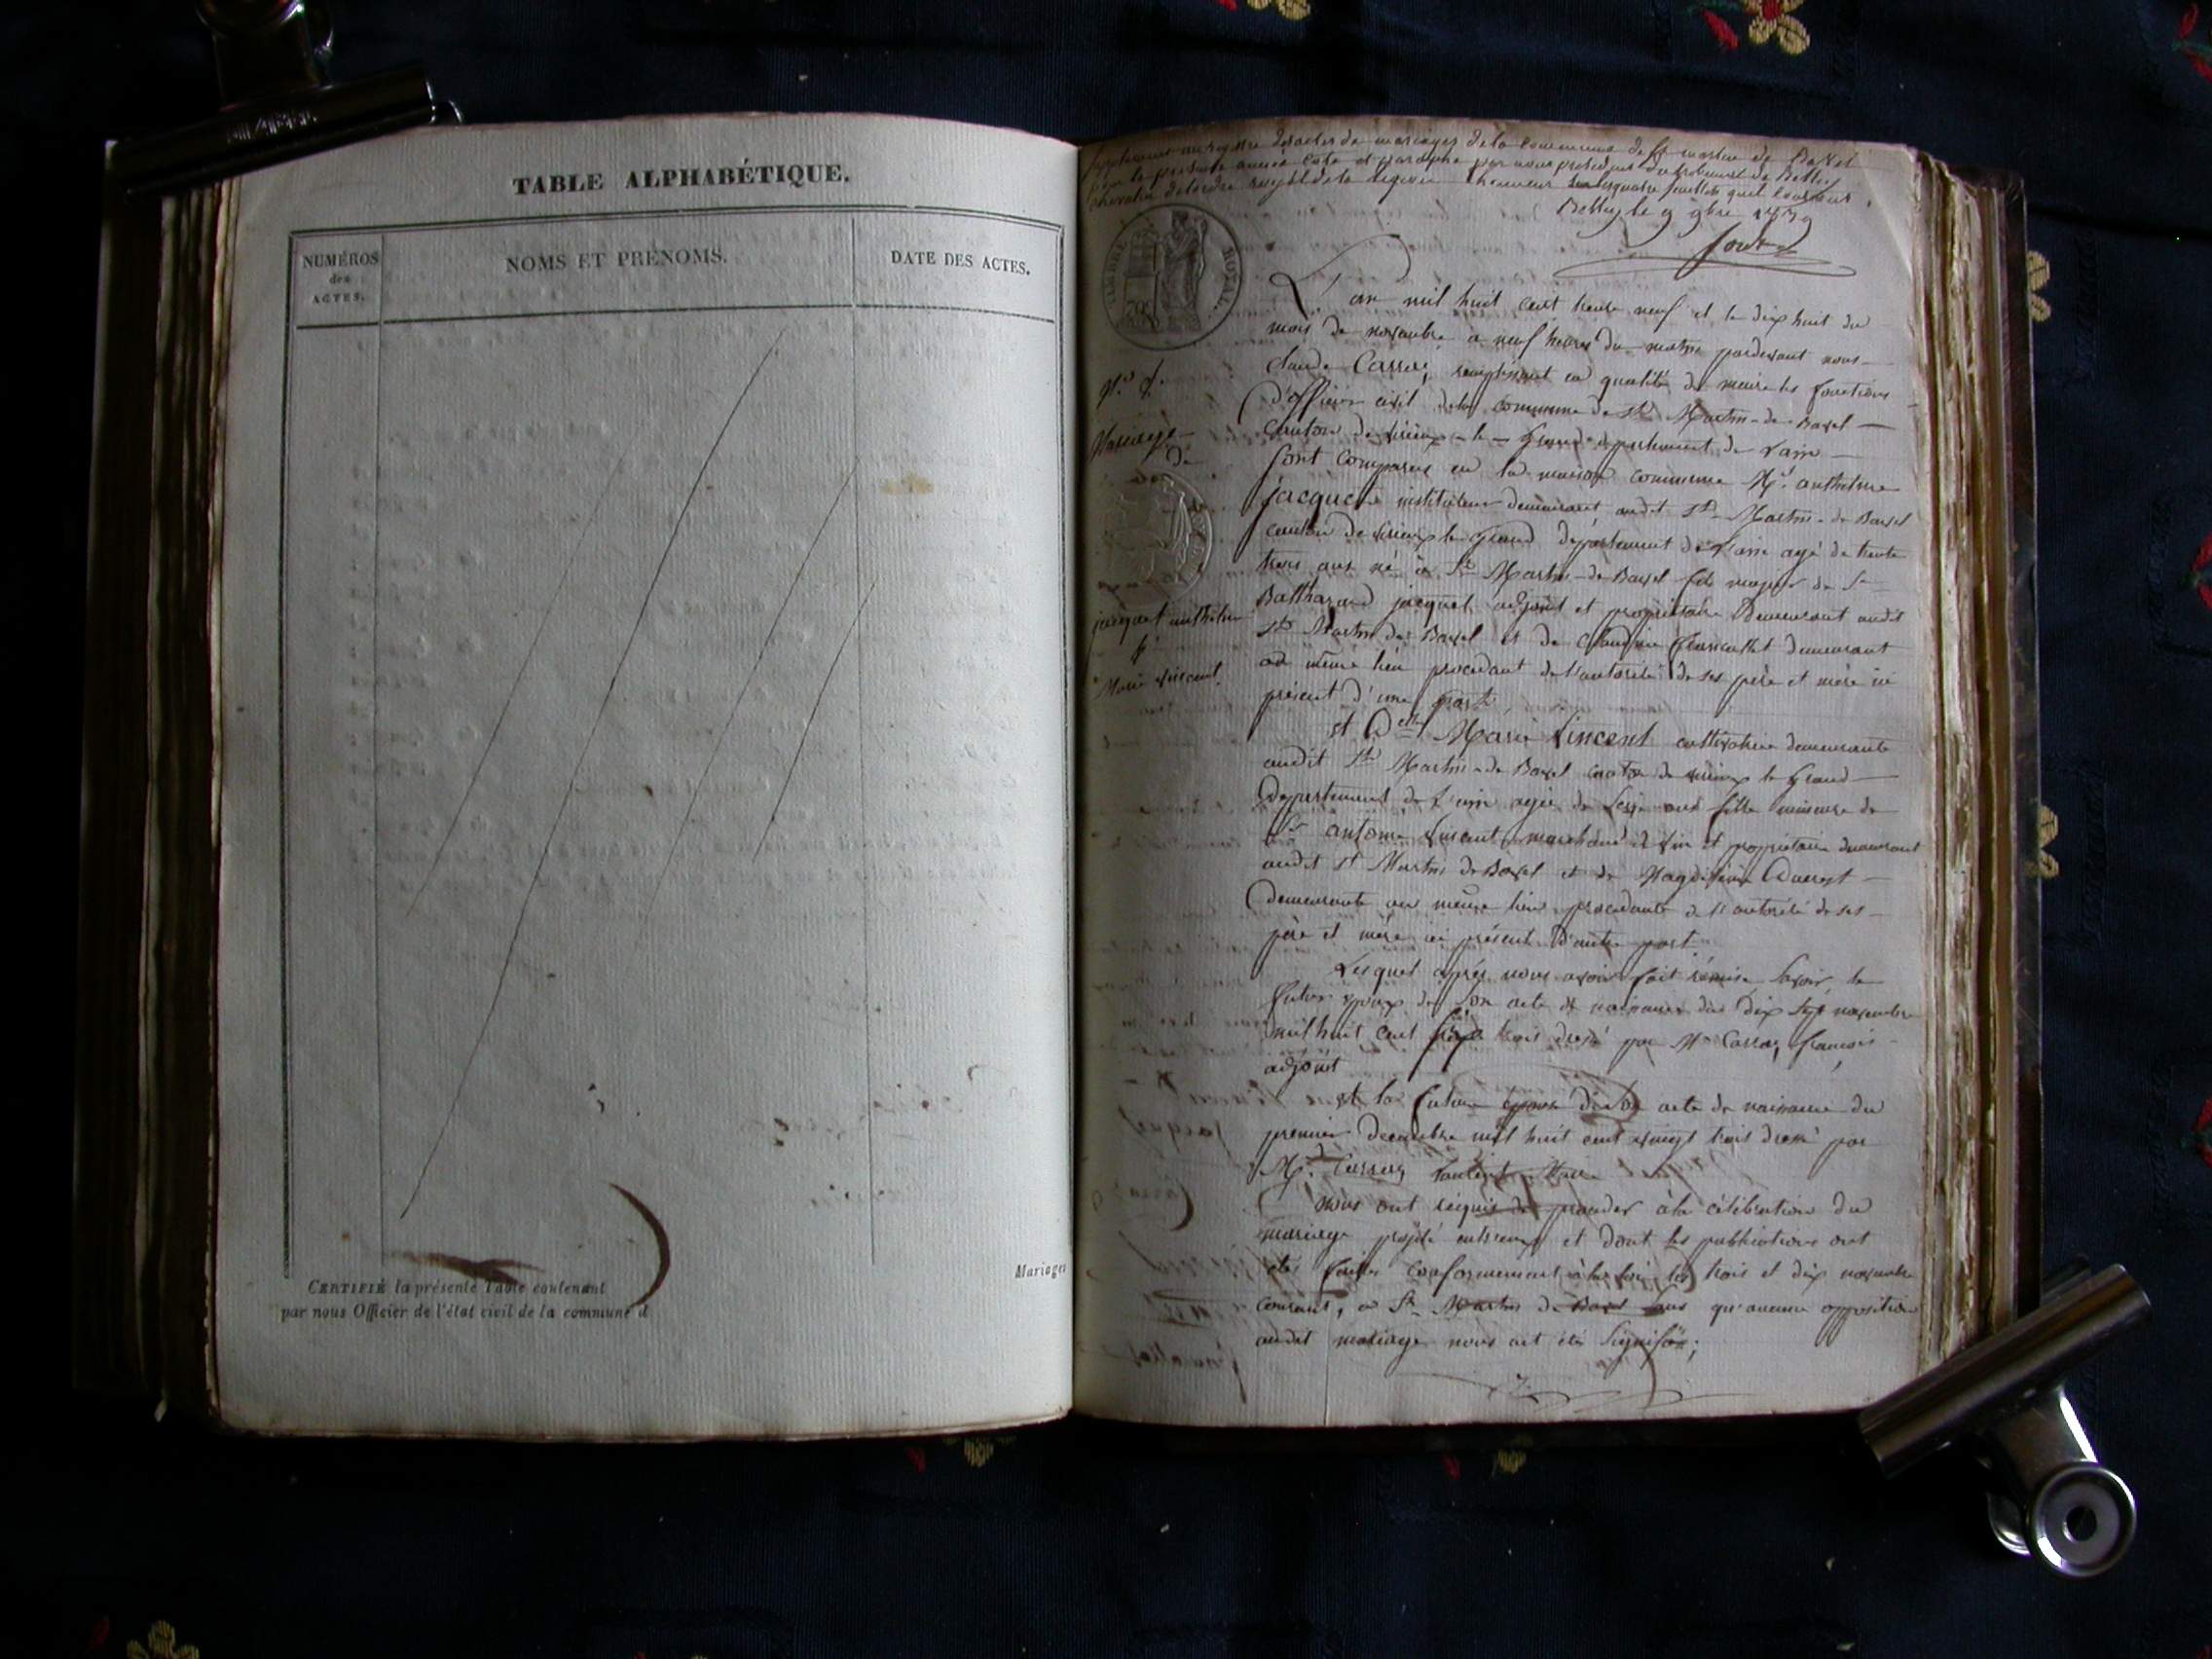 TABLE ALPHABÉTIQUE.
NUMÉROS
des
ACTES.
NOMS ET PRÉNOMS.
DATE DES ACTES.
CERTIFIÉ la présente Table contenant
par nous Officier de l'état civil de la commune d
Mariages
Supplement au registre des actes de mariages de la commune de St martin de Bavel
pour la presente année coté et paraphé par nous president du tribunal de Belley
chevalier de lordre royal de la legion d'honneur sur les quatre feuillets quil contient
Belley le 9 9bre 1839
TIMBRE ROYAL
L'an mil huit cent trente neuf et le dix huit du
mois de novembre a neuf heures du matin pardevant nous
Claude Carrel, remplissant en qualité de maire les fonctions
d'officier civil de la commune de St Martin-de Bavel
Canton de virieux-le-Grand département de l'ain
Sont comparus en la maison commune Mr. anthelme
jacquet instituteur demeurant audit St Martin-de Bavel
canton de virieux le Grand département de l'ain agé de trente
trois ans né à St Martin-de Bavel fils majeur de Sr
Balthazard jacquet adjoint et propriétaire demeurant audit
St Martin de Bavel et de Claudine demeurant
au même lieu procedant de l'autorité de ses père et mère ici
présent d'une part
et Delle Marie Vincent cultivatrice demeurante
audit St Martin-de Bavel canton de virieux le Grand
Département de l'ain agée de seize ans fille mineure de
Sr antoine vincent marchand de vin et propriétaire demeurant
audit St Martin de Bavel et de Magdeleine
demeurante au même lieu procedante de l'autorité de ses
père et mère ici présent d'autre part
Lesquel après nous avoir fait remise savoir, le
futur époux de son acte de naissance du dix sept novembre
mil huit cent trois dressé par Mr françois
adjoint
et la future épouse de son acte de naissance du
premier decembre mil huit cent vingt trois dressé par
Mr. Maire
Nous ont requis de proceder à la célébration du
mariage projeté entreeux et dont les publications ont
étés faites conformement à la loi les trois et dix novembre
courant, a St Martin de Bavel sans qu'aucune opposition
audit mariage nous ait été signifiée;
No 7.
Mariage
de
jacquet anthelme
&
Marie vincent.